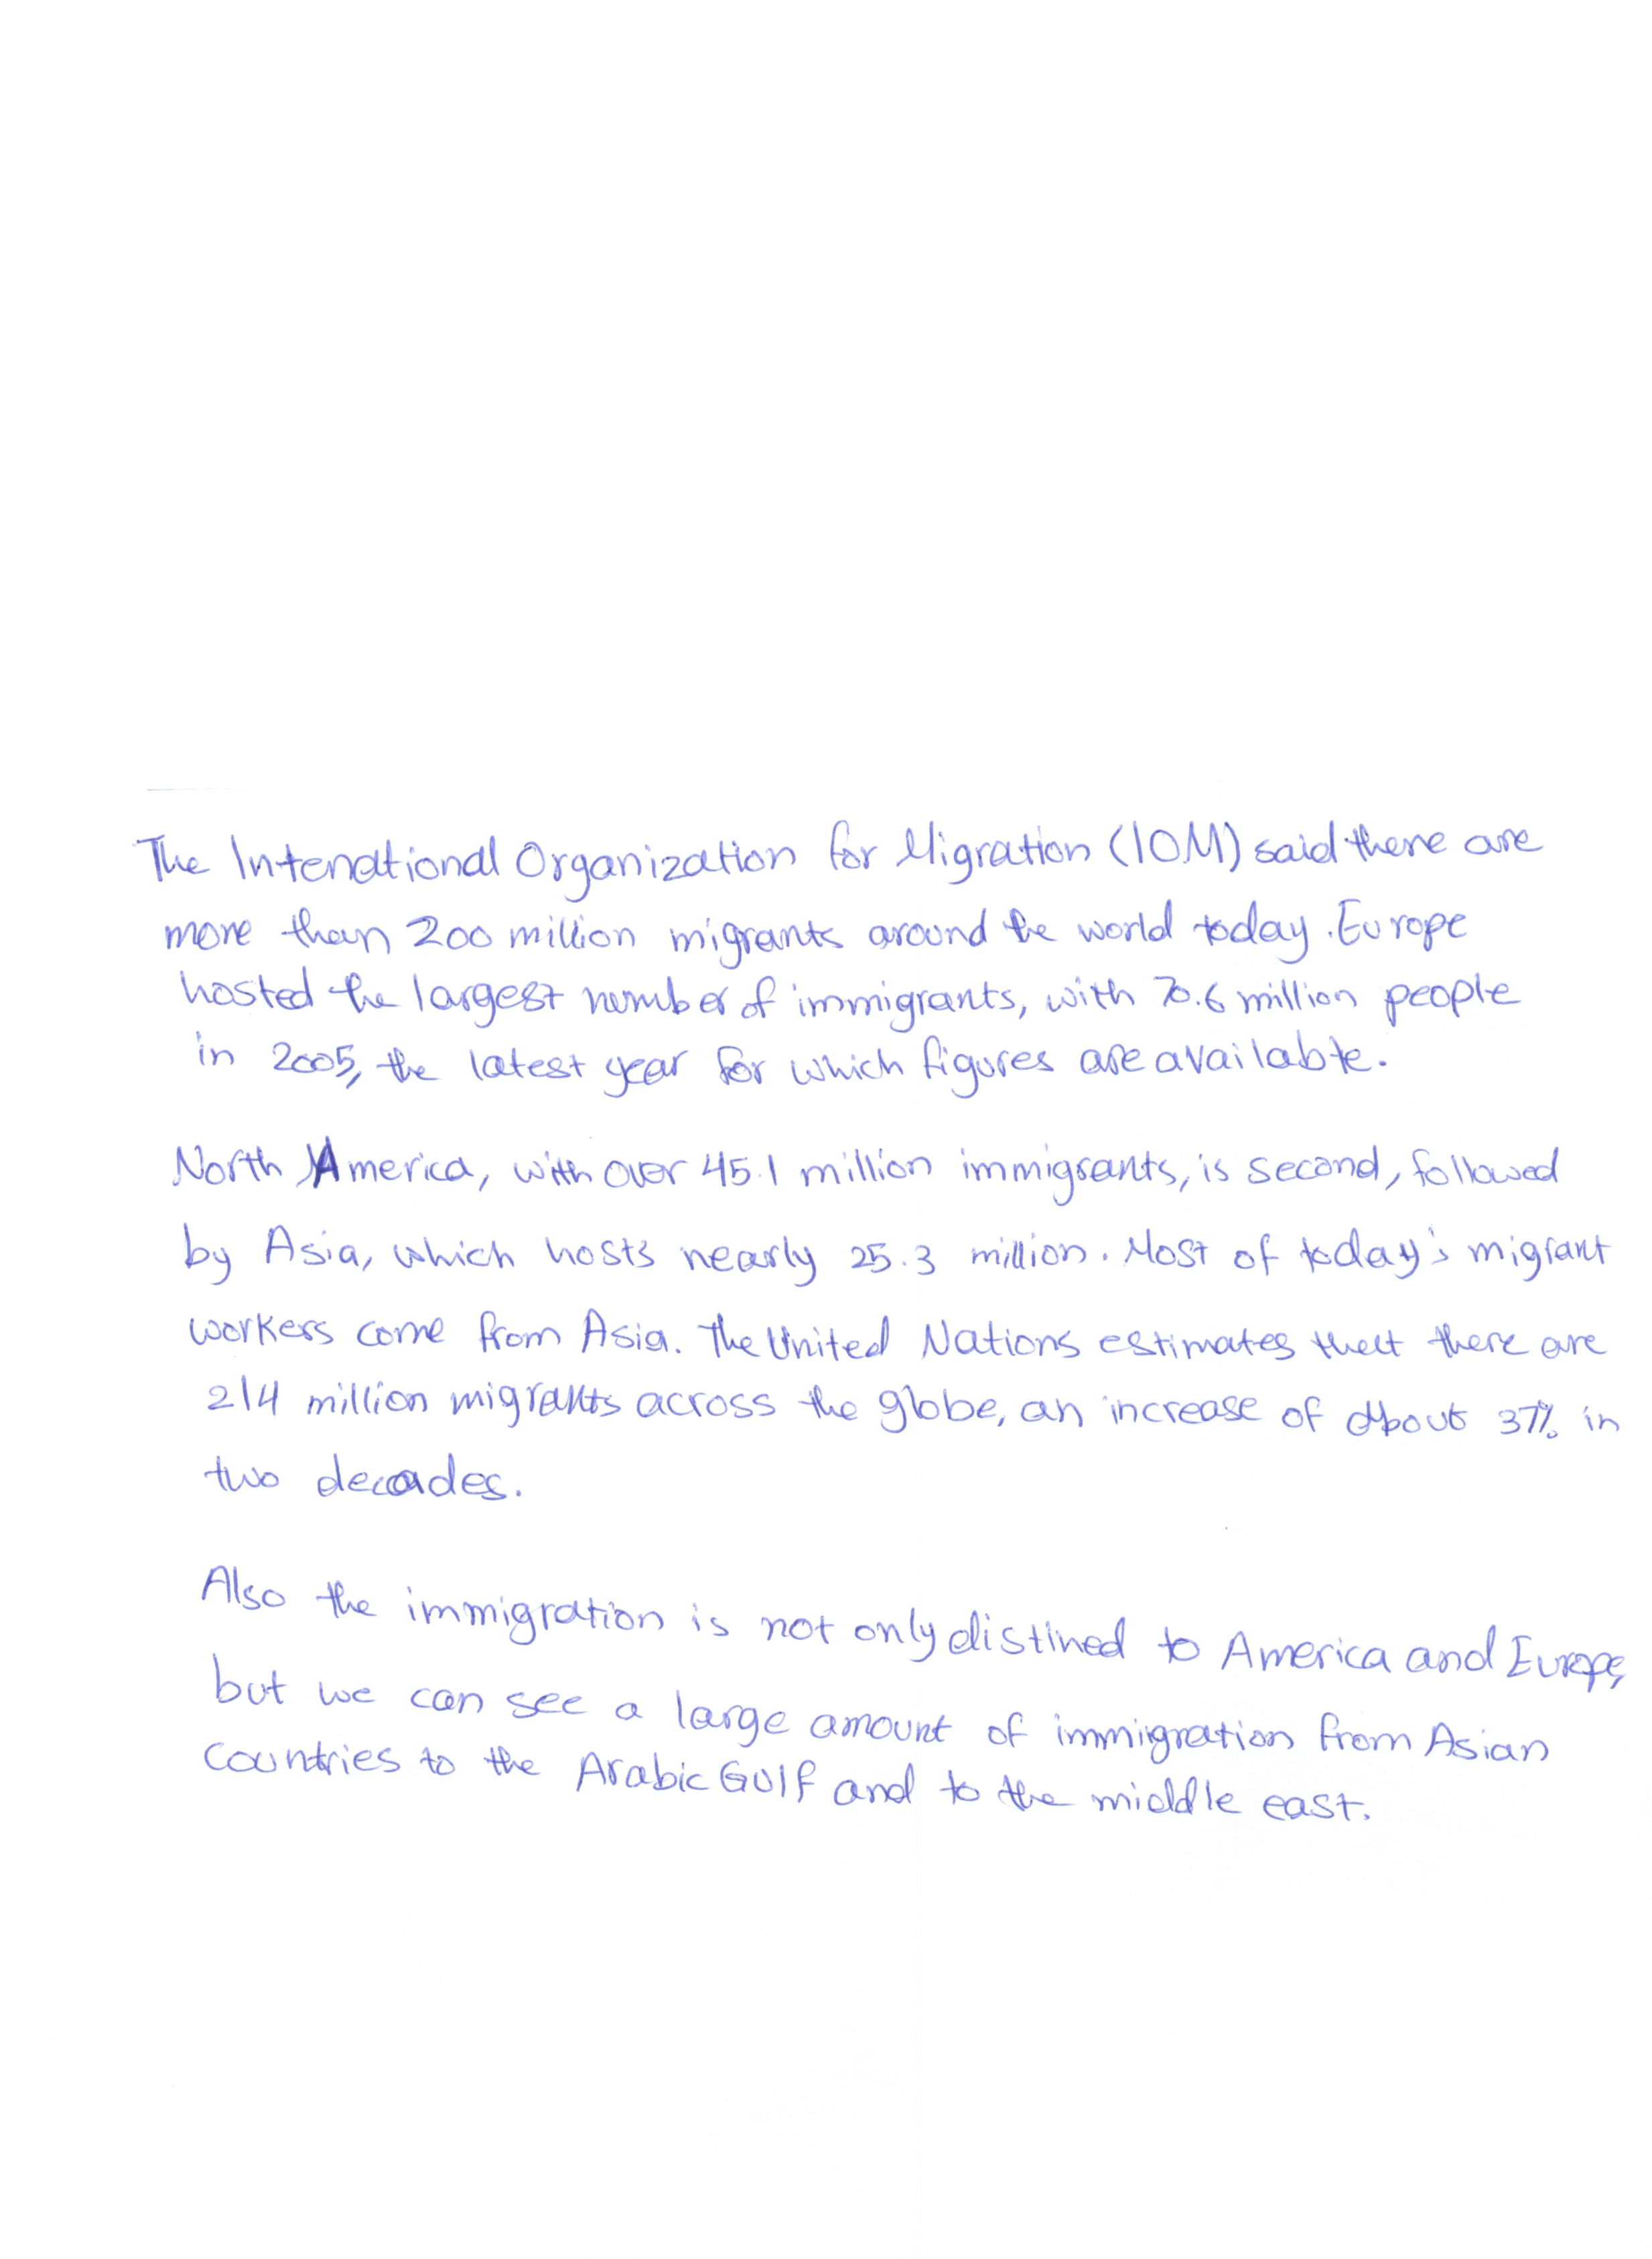 The Intenational Organization for Migration (IOM) said there are
more than 200 million migrants around the world today. Europe
hosted the largest number of immigrants, with 70.6 million people
in 2005, the latest year for which figures are available.
North America, with over 45.1 million immigrants, is second, followed
by Asia, which hosts nearly 25.3 million. Most of today's migrant
workers come from Asia. The United Nations estimates that there are
214 million migrants across the globe, an increase of about 37% in
two decades.
Also the immigration is not only distined to America and Europe,
but we can see a large amount of immigration from Asian
countries to the Arabic Gulf and to the middle east.